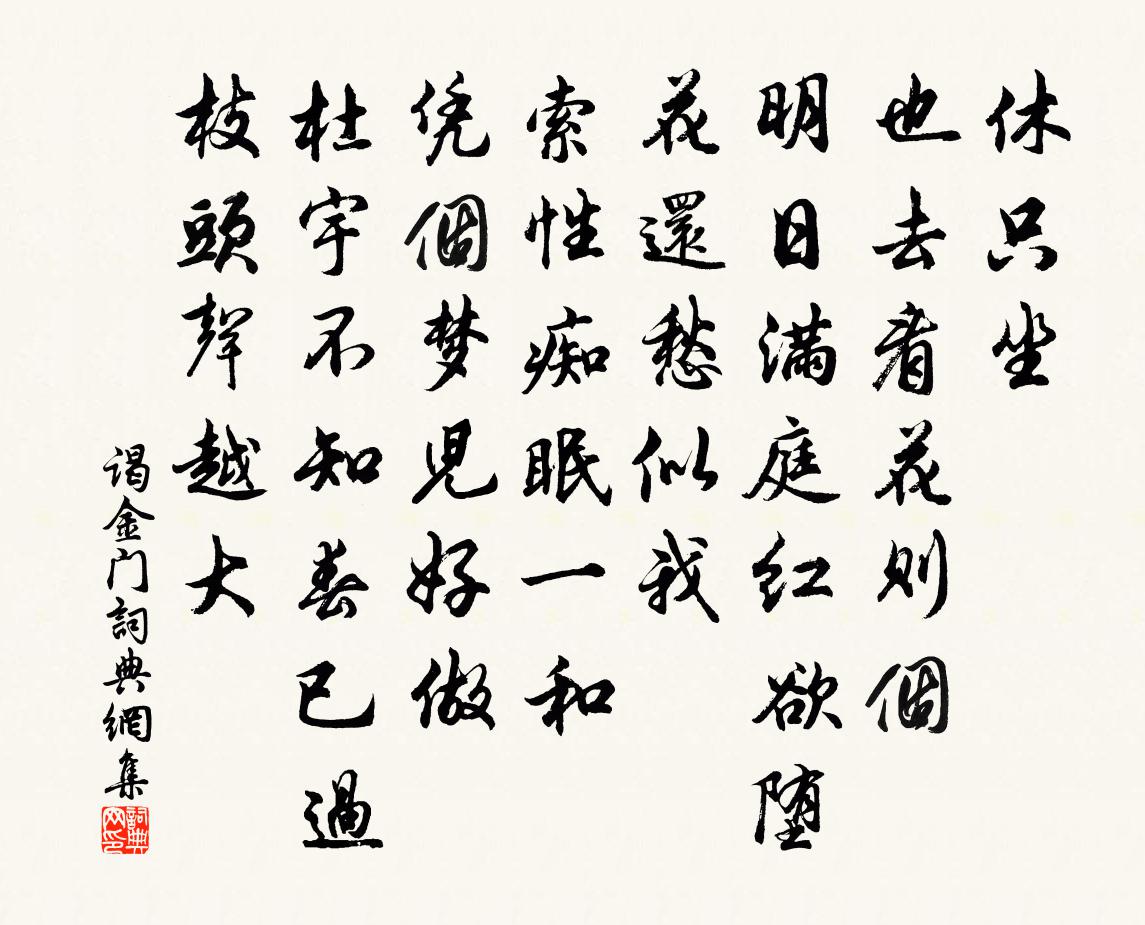 休只坐
也去看花则個
明日满庭红欲堕
花還愁似我
索性痴眠一和
凭個梦児好做
杜宇不知春已過
枝頭聲越大
谒金门詞典網集
詞典网印